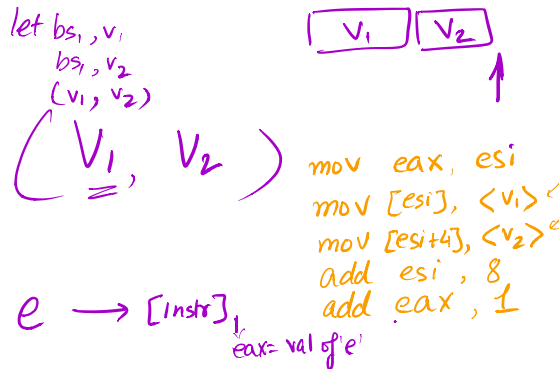 let bs₁, v₁
bs₁, v₂
(v₁, v₂)
(V₁, V₂)
V₁ V₂
mov eax, esi
mov [esi], <v₁>
mov [esi+4], <v₂>
add esi, 8
add eax, 1
e → [Instr]
eax = val of 'e'